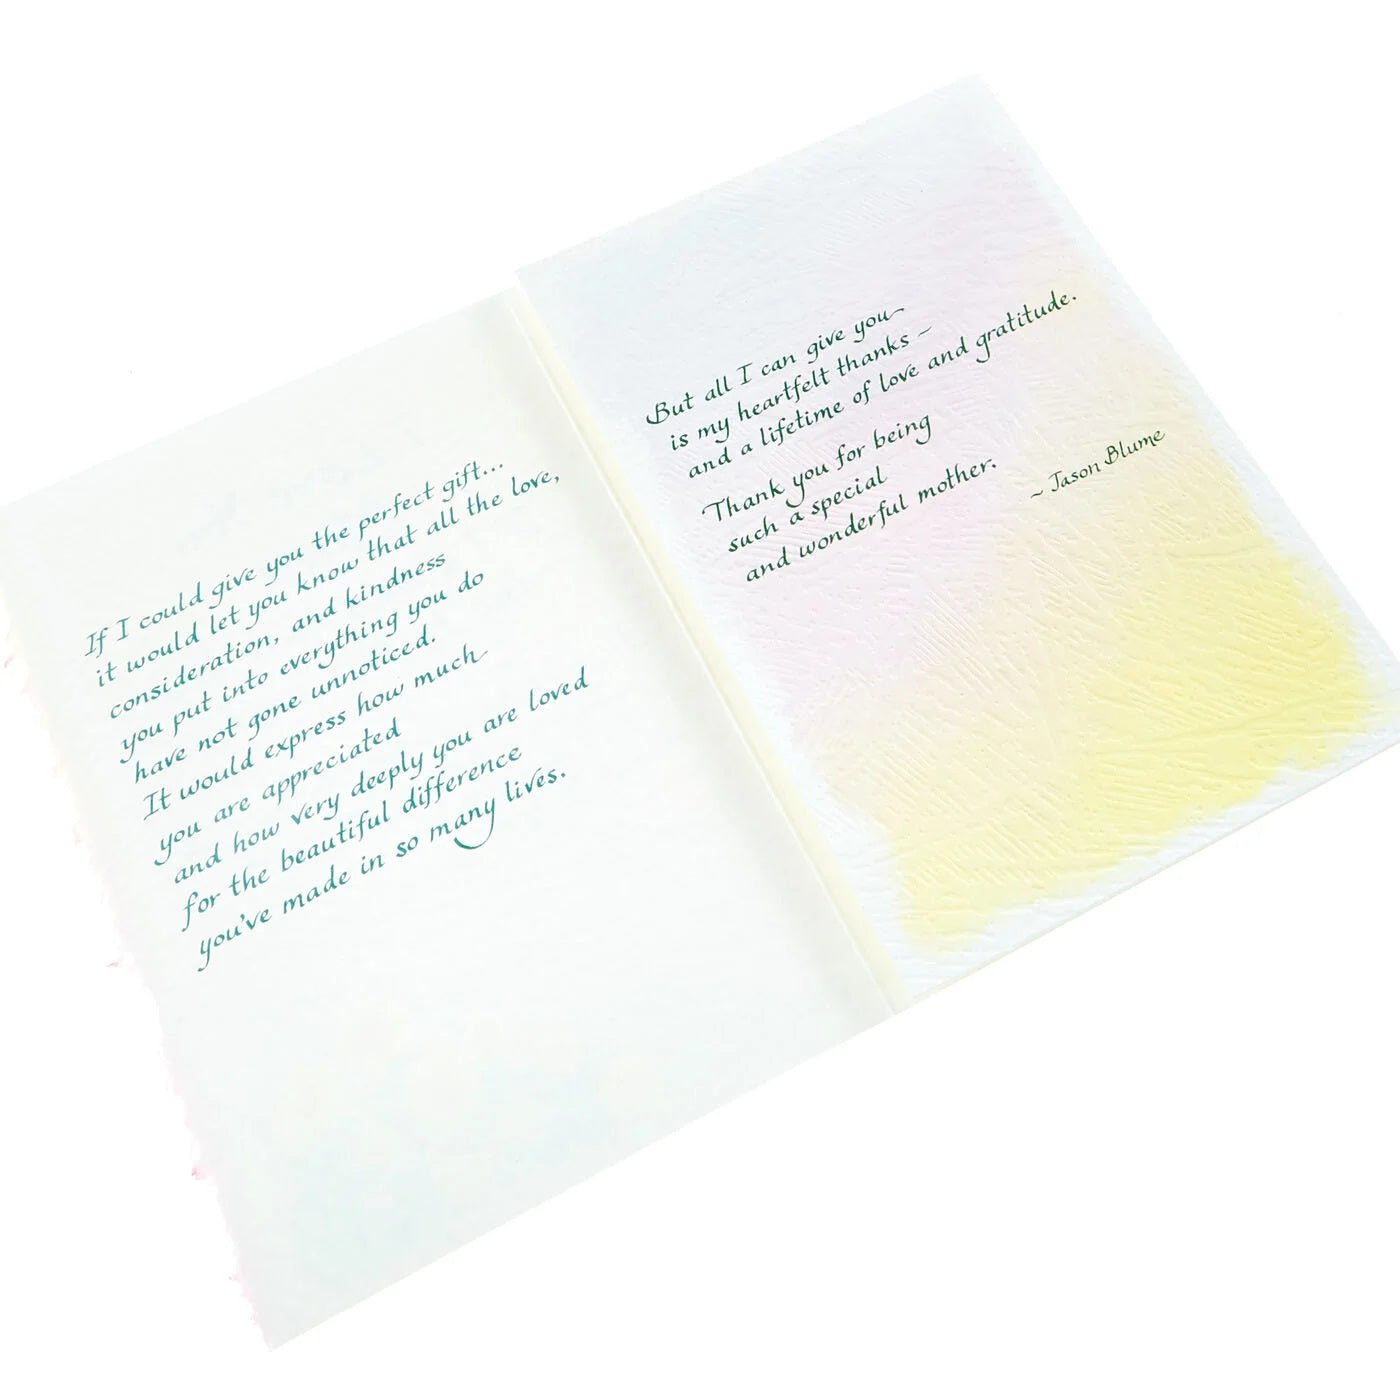 If I could give you the perfect gift...
it would let you know that all the love,
consideration, and kindness
you put into everything you do
have not gone unnoticed.
It would express how much
you are appreciated
and how very deeply you are loved
for the beautiful difference
you've made in so many lives.
But all I can give you
is my heartfelt thanks –
and a lifetime of love and gratitude.
Thank you for being
such a special
and wonderful mother.
~ Jason Blume